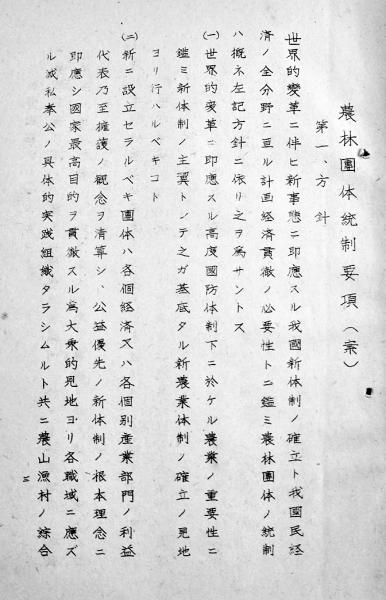 農林團体統制要項（案）
第一、方針
世界的變革ニ伴ヒ新事態ニ即應スル我國新体制ノ確立ト我國民経
済ノ全分野ニ亘ル計画経済貫徹ノ必要性トニ鑑ミ農林團体ノ統制
ハ概ネ左記方針ニ依リ之ヲ為サントス
㈠世界的変革ニ即應スル高度國防体制下ニ於ケル農業ノ重要性ニ
鑑ミ新体制ノ主要トシテ之ガ基底タル新農業体制ノ確立ノ見地
ヨリ行ハルベキコト
㈡新ニ設立セラルベキ團体ハ各個経済又ハ各個別産業部門ノ利益
代表乃至擁護ノ観念ヲ清算シ、公益優先ノ新体制ノ根本理念ニ
即應シ國家最高目的ヲ貫徹スル為大衆的見地ヨリ各職域ニ應ズ
ル滅私奉公ノ具体的実践組織タラシムルト共ニ農山漁村ノ綜合